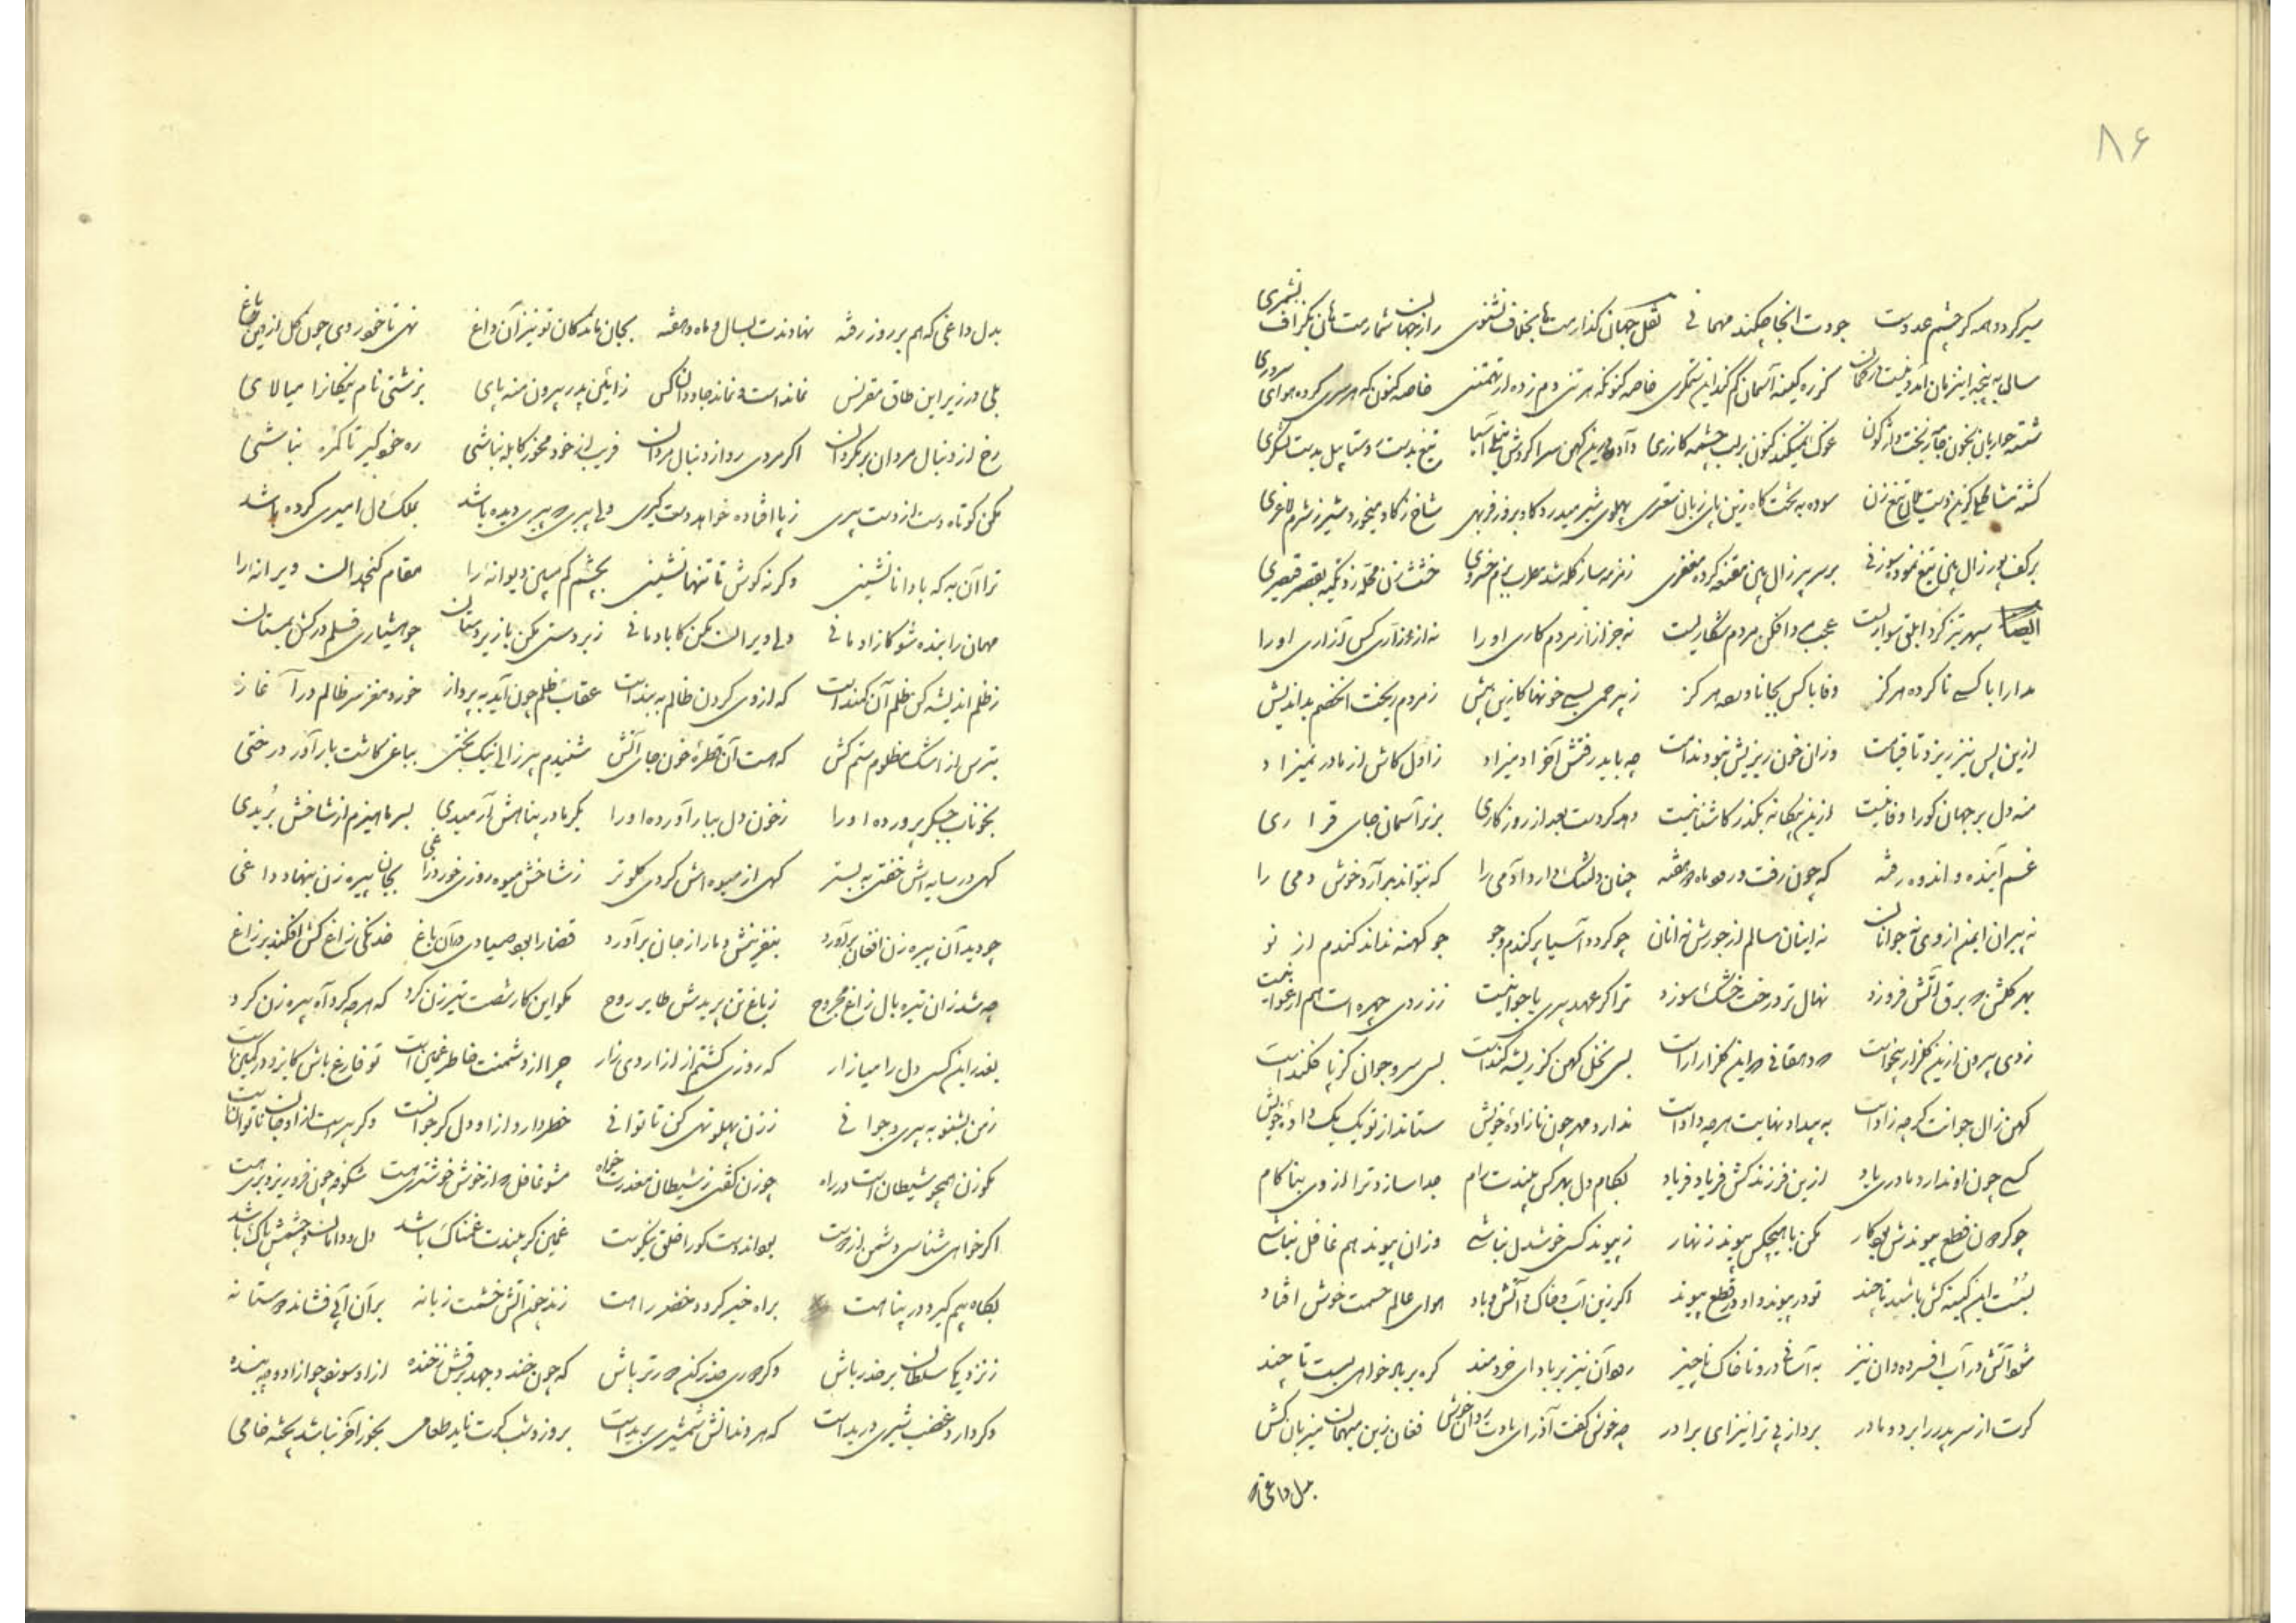 ۸۶
سیر کردد همه کر چشم عدوت جودت انجا چکند مهمانی نقل جهان کذار مت ها بخلاف نشنوی راز جهان شمارمت هان بکزاف نشمری
سالی به پنجه این زمان آمد و نیست در کمان کز ره کینه آسمان کم کند این ستمکری خاصه کنونکه هر تنی دم زده از تهمتنی خاصه کنون که هر سری کرده هوای سروری
شسته حواریان بخون جامه ز بخت واژکون عوک فیکند کنون بر لب چشمه کازری داده درین کهن سرا کردش نیلی آسیا تیغ بدست روستا بیل بدست لشکری
کشته مشاطه کزین دست یلان تیغ زن سوده به تخت کاه زین پای زبان سعتری پهلوی شیر میدرد کاو بروز فربهی شاخ ز کاو میخورد شیر ز شرم لاغری
بر کف پور زال بین تیغ نموده سوزنی بر سر پیر زال بین مقنعه کرده مغفری زمزمه ساز کله شد مطرب بزم خسروی خشت زن محله زد تکیه بقصر قیصری
ایضا سپهر تیز کرد ابلق سواریست عجب مردافکن مردم شکاریست نه جز آزار مردم کاری او را نه از آزاری کس آزاری او را
مدارا با کسی ناکرده هرکز وفا با کس بجا ناورده هرکز ز بیرحمی بسی خونها کزین پیش ز مردم ریخت انخصم بداندیش
ازین پس نیز ریزد تا قیامت وزان خون ریزیش نبود ندامت چه باید رفتش آخر اد میزاد ز اول کاش از مادر نمیزاد
منه دل بر جهان کورا وفا نیست ازین بیکانه بکذر کاشنا نیست دهد کردست بعد از روزکاری بزیر آسمان جای قراری
غم آینده و اندوه رفته که چون رفت و رود ماه و هفته چنان دلتنک دارد آدمی را که نتواند برآرد خوش دمی را
نه پیران ایمنم از وی نه جوانان نه اینان سالم از جورش نه آنان چو کردد آسیا بر کندم و جو جو کهنه نداند کندم از نو
بهر کلشن که برق آتش فروزد نهال تر درخت خشک سوزد ترا کر عهد پیری یا جوانیست ز زردی چهره است هم ارغوانیست
ز دی بیرون ازین کلزار بیخ است که دهقانی در این کلزار آراست بسی نخل کهن کز ریشه کنداست بسی سرو جوان کز پا فکنداست
کهن زال جوانت کرچه زاداست به بیداد نهایت هرچه داداست ندارد مهر چون نازادهٔ خویش ستاند از تو یک یک دادهٔ خویش
کسی چون او ندارد مادری یاد ازین فرزند کش فریاد فریاد بکام دل بهر کس بیندت رام جدا سازد ترا از وی بناکام
چو کردون قطع پیوندش بود کار مکن با هیچکس پیوند زنهار ز پیوند کسی خوشدل نباشی وزان پیوند هم غافل نباشی
بسست این کینه کش باشد تا چند تو در پیوند و او در قطع پیوند اکر زین آب و خاک و آتش و باد هوای عالم جسمت خوش افتاد
مشو آتش در آب افسرده دان نیز به آسانی درو تا خاک ناچیز رهوان نیز بر باد ای خردمند کره بر باد خواهی بست تا چند
کرت از سر پدر را برد و مادر پرداز پی ترا نیز ای برادر چه خوش کفت آذر ای بادت روان خوش فغان زین میهمان میزبان کش
بدل داغی که
بدل داغی که هم بر روز رفته نهادندت بسال و ماه و هفته بجان ماندکان تو نیز آن داغ نهی تا خوردی چون کل ازین باغ
بلی در زیر این طاق مقرنس نماند است و نماند جاودان کس ز ائین پدر بیرون منه پای بزشتی نام نیکانرا میالای
رخ از دنبال مردان بر مکردان اکر مردی رو از دنبال مردان فریب از خود مخور کابله نباشی ره خو کیر تا کمره نباشی
مکن کوتاه دست از دست پیری ز پا افتاده خواهد دست کیری دلا پیری که پیری دیده باشد بملک دل امیری کرده باشد
ترا آن به که با دانا نشینی و کر نه کوش تا تنها نشینی بچشم کم مبین دیوانه را مقام کنج دان ویرانه را
مهمان را بنده شو کازاد مانی دلا ویران مکن کاباد مانی زبردستی مکن با زیردستان چو هشیاری قلم درکش بمستان
ز ظلم اندیشه کن ظلم آن کمند است که از وی کردن ظالم به بند است عقاب ظلم چون آید به پرواز خورد مغز سر ظالم در آغاز
بترس از اشک مظلوم ستم کش که هست آن قطرهٔ خون جای آتش شنیدم پیر زالی نیک بختی بباغی کاشت بار آور درختی
بخوناب جکر پرورده او را ز خون دل ببار آورده او را بکرما در پناهش آرمیدی بسرما هیزم از شاخش بُریدی
کهی در سایه اش خفتی به بستر کهی از میوه اش کردی کلو تر ز شاخش میوه روزی خورد زاغی بجان پیره زن بنهاد داغی
چو دید آن پیره زن افغان برآورد بنفرینش دمار از جان برآورد قضا را بود صیادی در آن باغ خدنکی ز اغ کش افکند بر زاغ
چه شد زان تیره بال زاغ مجروح ز باغ تن پریدش طایر روح مکو این کار شصت تیرزن کرد که هرچه کرد آه پیره زن کرد
بغدر این کسی دل را میازار که روزی کشتم از آزار وی زار چرا از دشمنت خاطر غمین است تو فارغ باش کایزد در کمین است
ز من بشنو به پیری و جوانی ز زن پهلو تهی کن تا توانی خطر دارد از او دل کر جوانست و کر پیرست از او جان ناتوانست
مکو زن همچو شیطان است در راه چو زن کفتی ز شیطان معذرت خواه مشو غافل که از خوش خوشترت هست شکوفه چون فرو ریزد برت هست
اکر خواهی شناسی دشمن از دوست بود اندوست کورا خلق نیکوست غمین کر بیندت غمناک باشد دل و دامان و چشمش پاک باشد
بکاه بیم کیرد در پناهت براه خیر کردد خضر راهت زند چون آتش خشمت زبانه بر آن آبی فشاند دوستانه
ز نزدیکان سلطان بر حذر باش و کر داری حذر کن دورتر باش که چون خندد جهد برقش ز خنده از او سوزد چو آزاد و چه بنده
و کر دارد غضب شیری دریداست که هر دندانش شمشیری بریداست بروز و شب کرت ناید طعامی بخور آخر نباشد پخته خامی